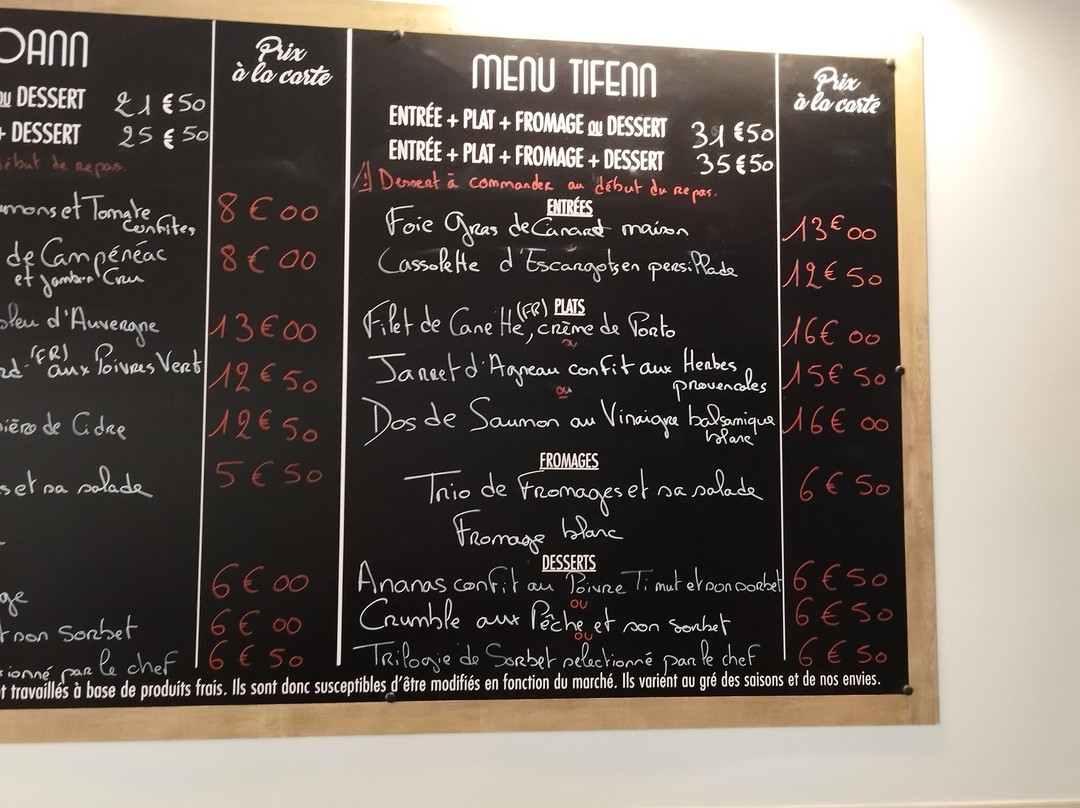 OANN
OU DESSERT 21 €50
+ DESSERT 25 €50
début de repas.
Prix
à la carte
et Tomate
Confites 8 € 00
de Campénéac 8 € 00
et jambon Cru
bleu d'Auvergne 13 € 00
(FR) aux Poivres Vert 12 € 50
de Cidre 12 € 50
et sa salade 5 € 50
6 € 00
son Sorbet 6 € 00
par le chef 6 € 50
MENU TIFENN
ENTRÉE + PLAT + FROMAGE OU DESSERT 31 €50
ENTRÉE + PLAT + FROMAGE + DESSERT 35 €50
⚠ Dessert à commander au début du repas.
Prix
à la carte
ENTRÉES
Foie Gras de Canard maison 13 € 00
Cassolette d'Escargots en persillade 12 € 50
PLATS
Filet de Canette (FR), crème de Porto 16 € 00
ou
Jarret d'Agneau confit aux Herbes 15 € 50
provencales
ou
Dos de Saumon au Vinaigre balsamique 16 € 00
blanc
FROMAGES
Trio de Fromages et sa salade 6 € 50
Fromage blanc
DESSERTS
Ananas confit au Poivre Timut et son sorbet 6 € 50
OU
Crumble aux Pêche et son sorbet 6 € 50
OU
Trilogie de Sorbet selectionné par le chef 6 € 50
travaillés à base de produits frais. Ils sont donc susceptibles d'être modifiés en fonction du marché. Ils varient au gré des saisons et de nos envies.